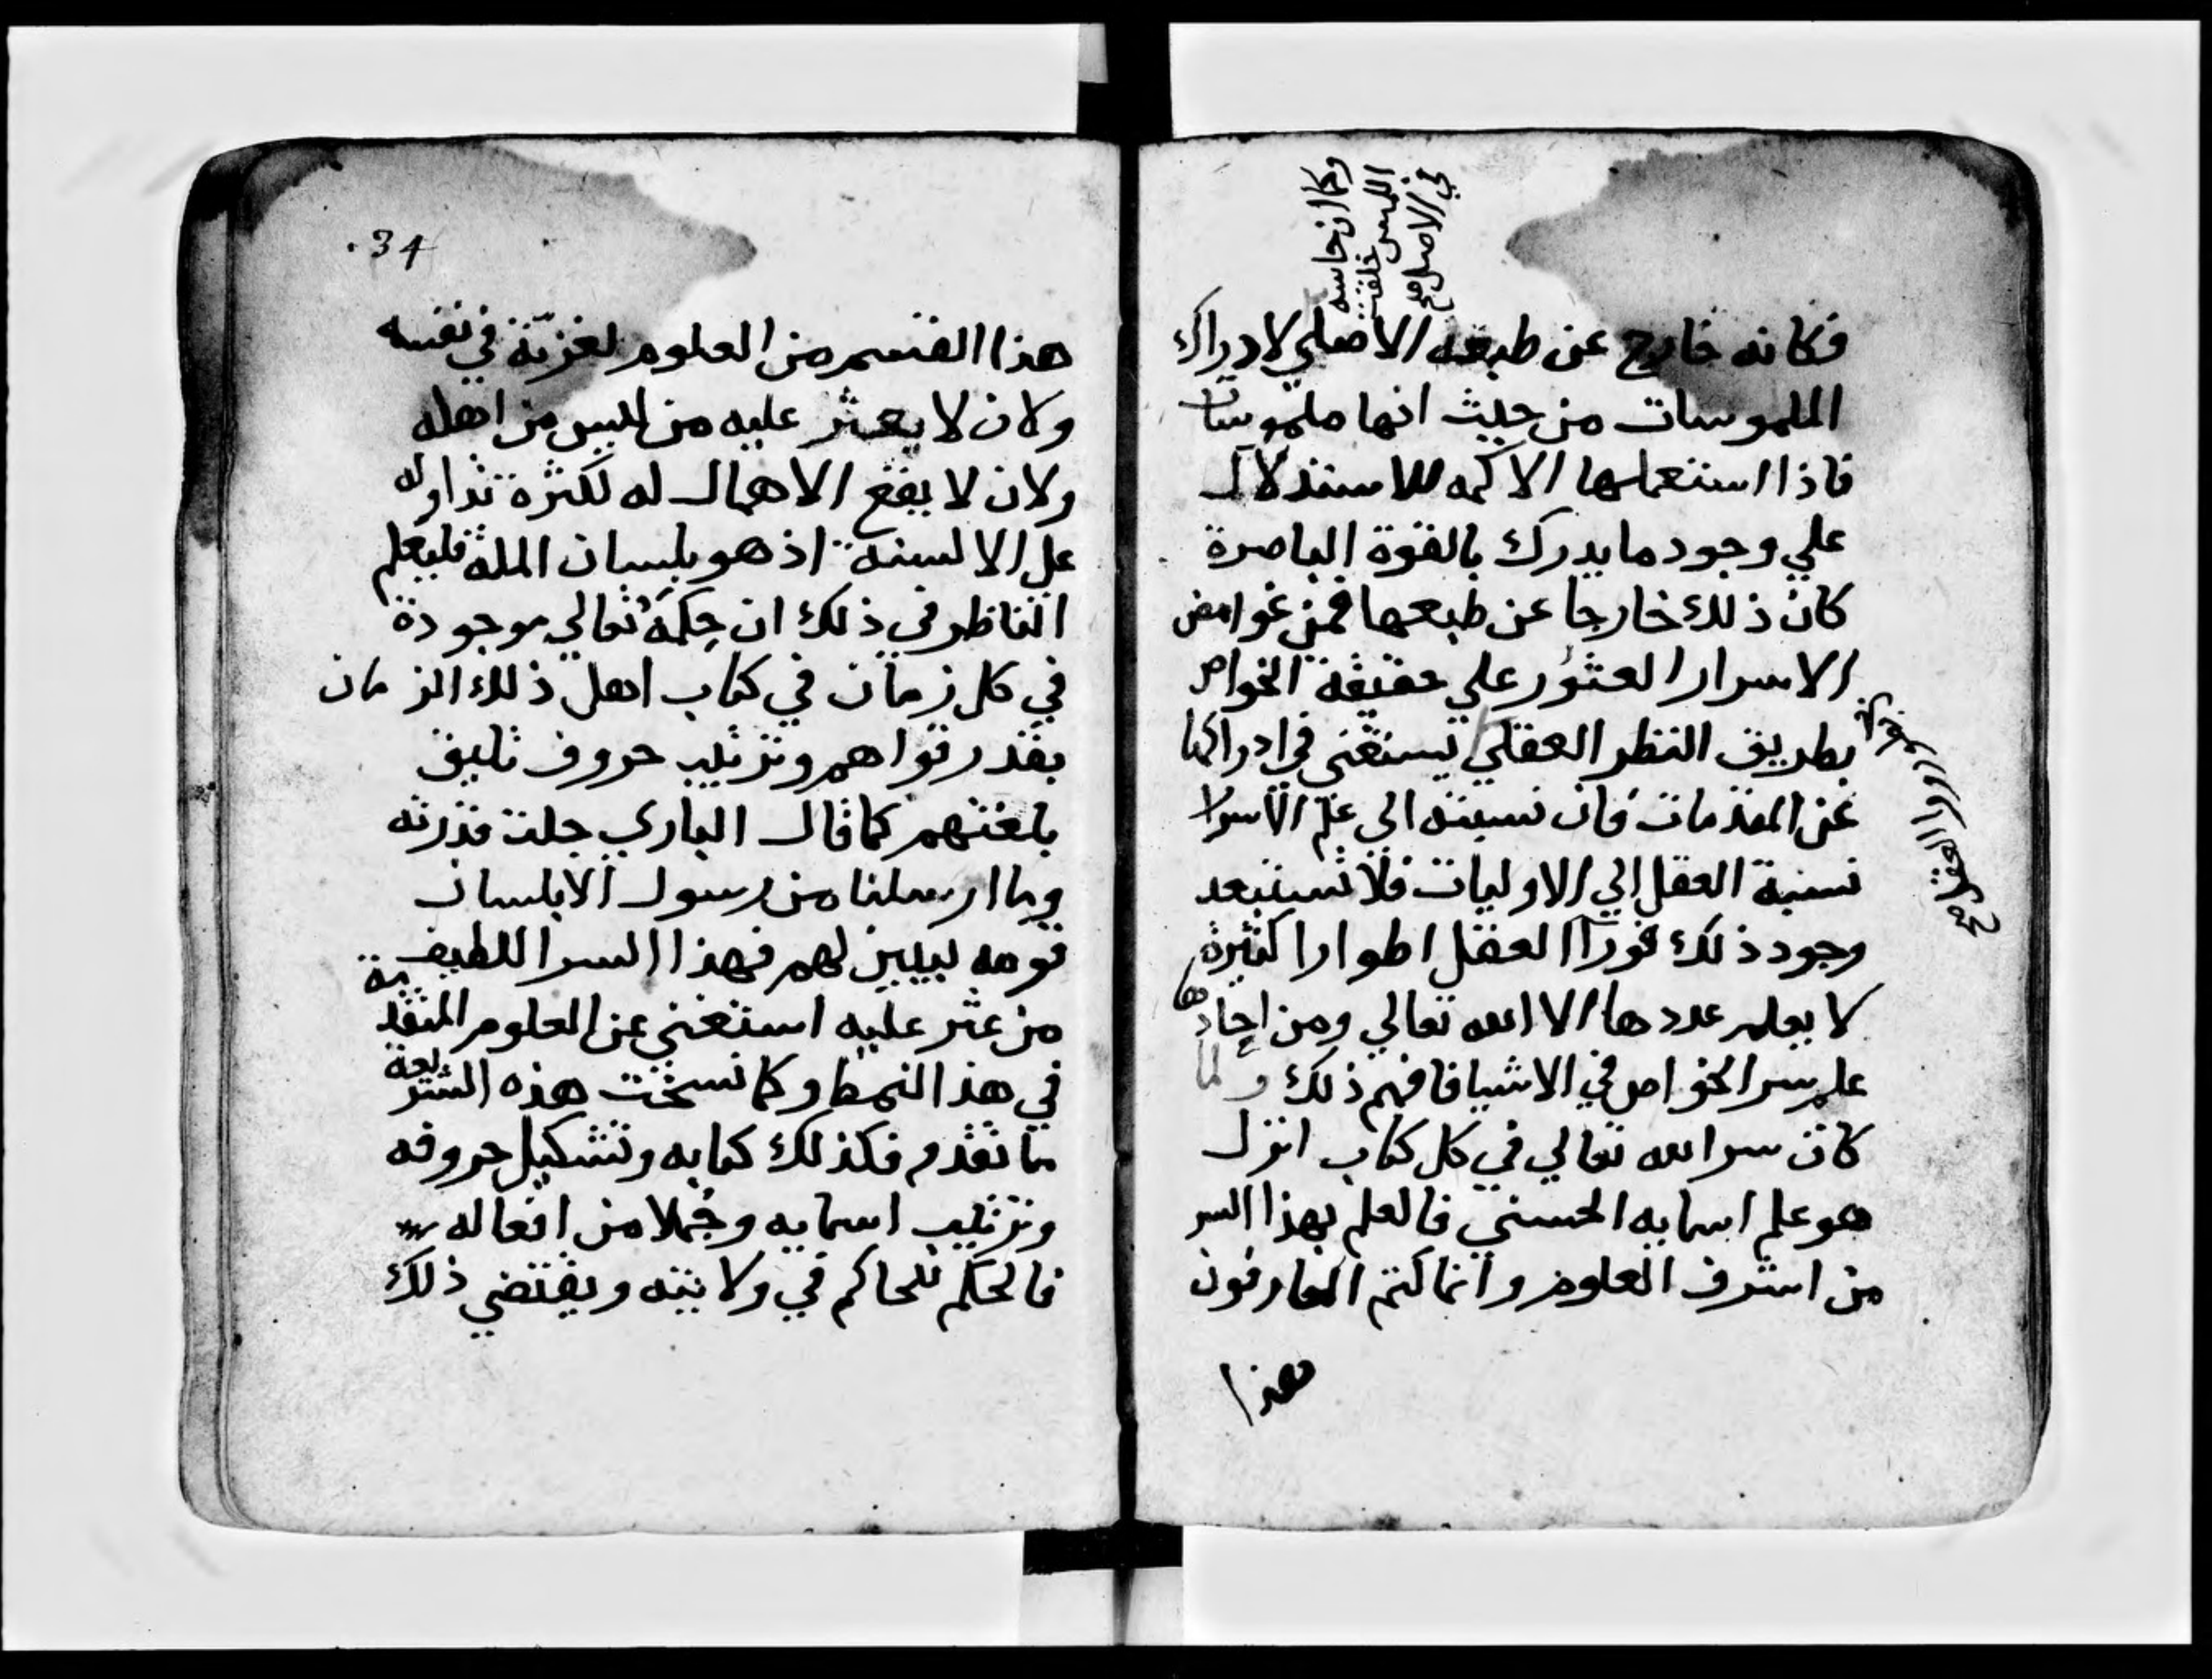 وكما ان حاسة
اللمس خلقت
في الاصل صح
فكانه خارج عن طبعه الاصلي لادراك
الملموسات من حيث انها ملموسات
فاذا استعملها الاكمه للاستدلال
علي وجود ما يدرك بالقوة الباصرة
كان ذلك خارجا عن طبعها فمن غوامض
الاسرار العثور علي حقيقة الخواص
بطريق النظر العقلي يستغني في ادراكها
عن المقدمات فان نسبته الي علم الاسرار
نسبة العقل الي الاوليات فلا تستبعد
وجود ذلك فورآ العقل اطوارا كثيرة
لا يعلم عددها الا الله تعالي ومن احادها
علم سر الخواص في الاشيا فافهم ذلك ولما
كان سر الله تعالي في كل كتاب انزل
هو علم اسمايه الحسني فالعلم بهذا السر
من اشرف العلوم وانما كتم العارفون
هذا
34
هذا القسم من العلوم لعزته في نفسه
ولان لا يعثر عليه من ليس من اهله
ولان لا يقع الاهمال له لكثرة تداوله
علي الالسنة اذ هو بلسان الملة فليعلم
الناظر في ذلك ان حِكَمَهُ تعالي موجودة
في كل زمان في كتاب اهل ذلك الزمان
بقدر قواهم وترتيب حروف تليق
بلغتهم كما قال الباري جلت قدرته
وما ارسلنا من رسول الا بلسان
قومه ليبين لهم فهذا السر اللطيف
من عثر عليه استغني عن العلوم المتقدمة
في هذا النمط وكما نسخت هذه الشريعة
ما تقدم فكذلك كتابه وتشكيل حروفه
وترتيب اسمايه وجُملا من افعاله
فالحكم للحاكم في ولايته ويقتضي ذلك